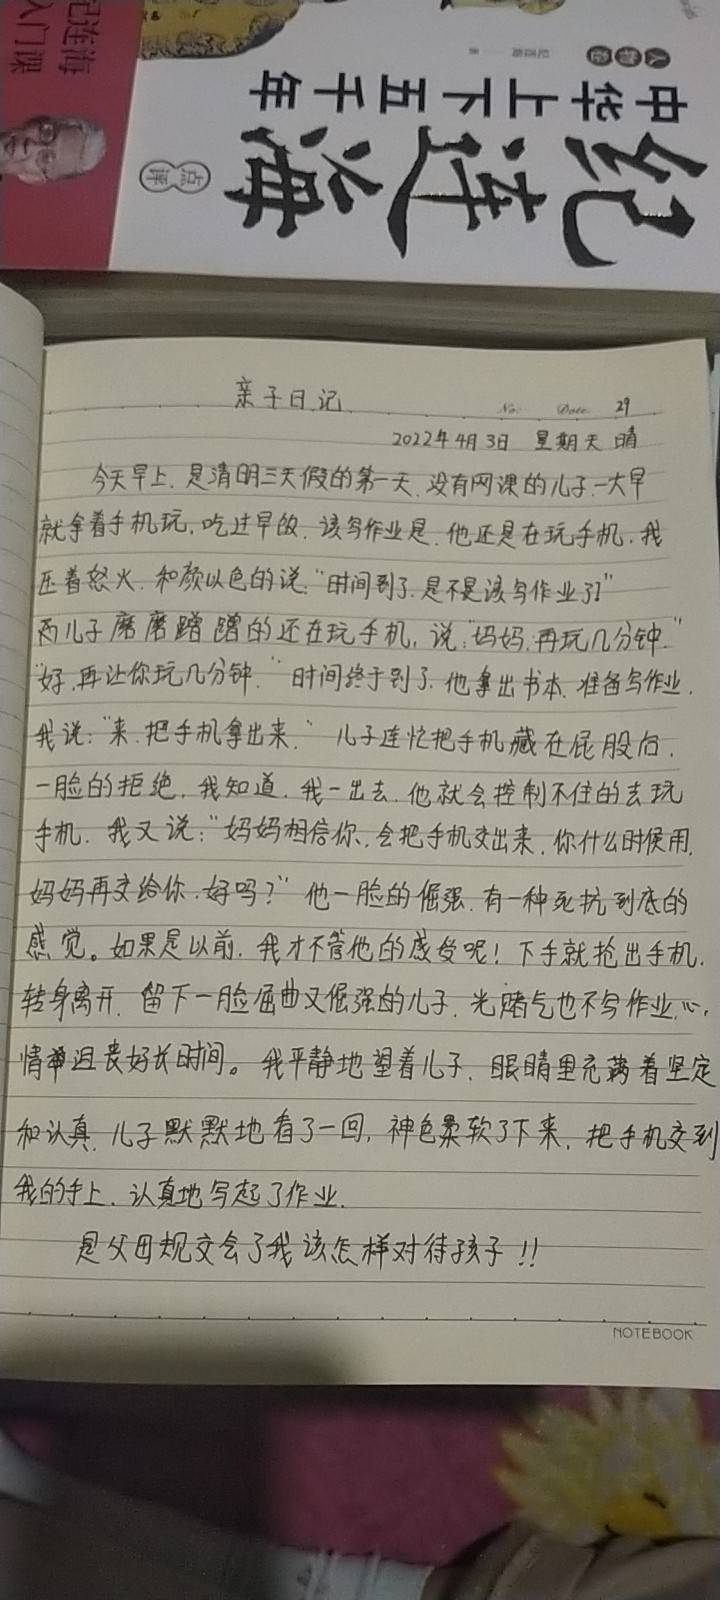 纪连海
入门课
人物卷
纪连海 著
中华上下五千年
纪连海
点评
亲子日记
No. Date. 29
2022年4月3日 星期天 晴
今天早上.是清明三天假的第一天.没有网课的儿子.一大早
就拿着手机玩.吃过早饭.该写作业是.他还是在玩手机.我
压着怒火.和颜以色的说:"时间到了.是不是该写作业了!"
而儿子磨磨蹭蹭的还在玩手机,说:"妈妈.再玩几分钟."
"好.再让你玩几分钟."时间终于到了.他拿出书本.准备写作业.
我说:"来.把手机拿出来."儿子连忙把手机藏在屁股后.
一脸的拒绝.我知道.我一出去.他就会控制不住的去玩
手机.我又说:"妈妈相信你.会把手机交出来.你什么时侯用.
妈妈再交给你.好吗?"他一脸的倔强.有一种死抗到底的
感觉。如果是以前.我才不管他的感受呢!下手就抢出手机.
转身离开.留下一脸屈曲又倔强的儿子.光赌气也不写作业.心.
情沮丧好长时间。我平静地望着儿子.眼睛里充满着坚定
和认真.儿子默默地看了一回,神色柔软了下来.把手机交到
我的手上.认真地写起了作业.
是父母规交会了我该怎样对待孩子!!
NOTEBOOK